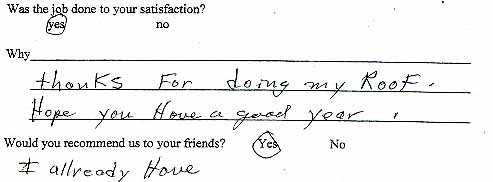 Was the job done to your satisfaction?
yes no
Why
thanks For doing my Roof.
Hope you Have a good year.
Would you recommend us to your friends? Yes No
I allready Have